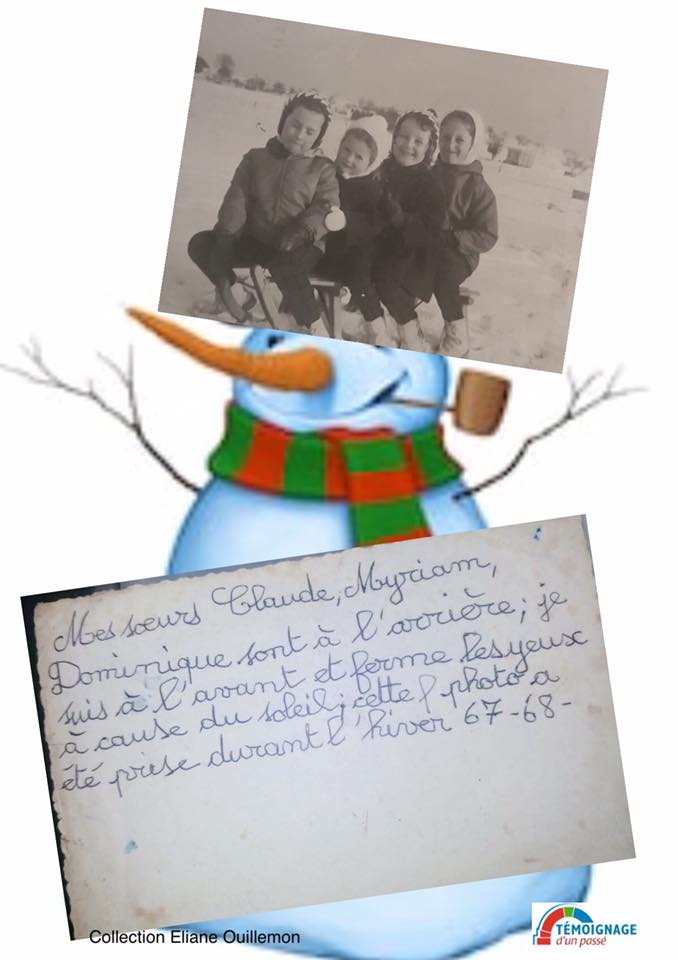 Mes sœurs Claude, Myriam,
Dominique sont à l'arrière; je
suis à l'avant et ferme les yeux
à cause du soleil; cette photo a
été prise durant l'hiver 67-68-
Collection Eliane Ouillemon
TÉMOIGNAGE
d'un passé